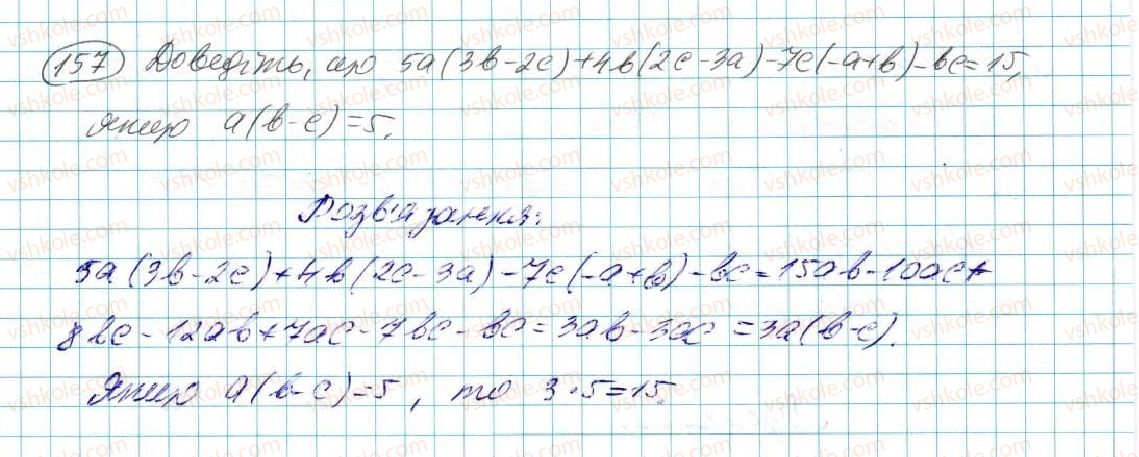 157 Доведіть, що 5a(3b-2c)+4b(2c-3a)-7c(-a+b)-bc=15,
якщо a(b-c)=5.
Розв'язання:
5a(3b-2c)+4b(2c-3a)-7c(-a+b)-bc=15ab-10ac+
8bc-12ab+7ac-7bc-bc=3ab-3ac=3a(b-c).
Якщо a(b-c)=5, то 3·5=15.
vshkole.com